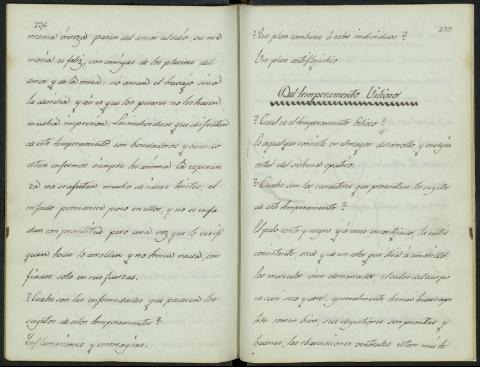 226
misma viveza: pasan del amor al odio, su me
moria es feliz, son amigos de los placeres del
amor y de la mesa: no aman el trabajo sino
la diversion y aun es que los pesares no les hacen
mucha impresion. Los individuos que disfrutan
de este temperamento son bondadosos y cuando
estan enfermos siempre les anima la esperan
za no se afectan mucho de ideas tristes, el
enfado permanece poco en ellos, y no se enfa
dan con prontitud pero una vez que lo verifi
quen todo lo arrollan y no temen nada, con
fiados solo en sus fuerzas.
? Cuales son las enfermedades que padecen los
sugetos de estos temperamentos?
Inflamaciones y emorragias.
227
? Que plan combiene á estos individuos?
Un plan antiflogistico
Del temperamento Bilioso
? Cual es el temperamento bilioso?
Es aquel que consiste en el mayor desarrollo y energia
vital del sistema epatico.
? Cuales son los caracteres que presentan los sugetos
de este temperamento?
El pelo corto y negro y á veces
consistente, seca y de un color que tira á amarillo,
los musculos bien demarcados, el calor del cuerpo
es casi seco y acre, generalmente tienen buen ape
tito comen bien, sus digestiones son prontas y
buenas, las ebacuaciones ventrales estan